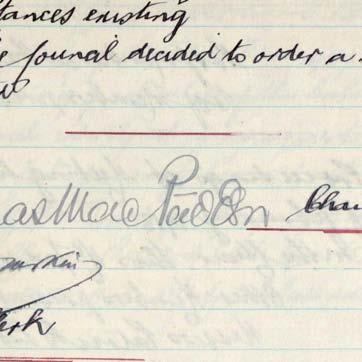 tances existing
Council decided to order a
as Mac Padden Chai
erk